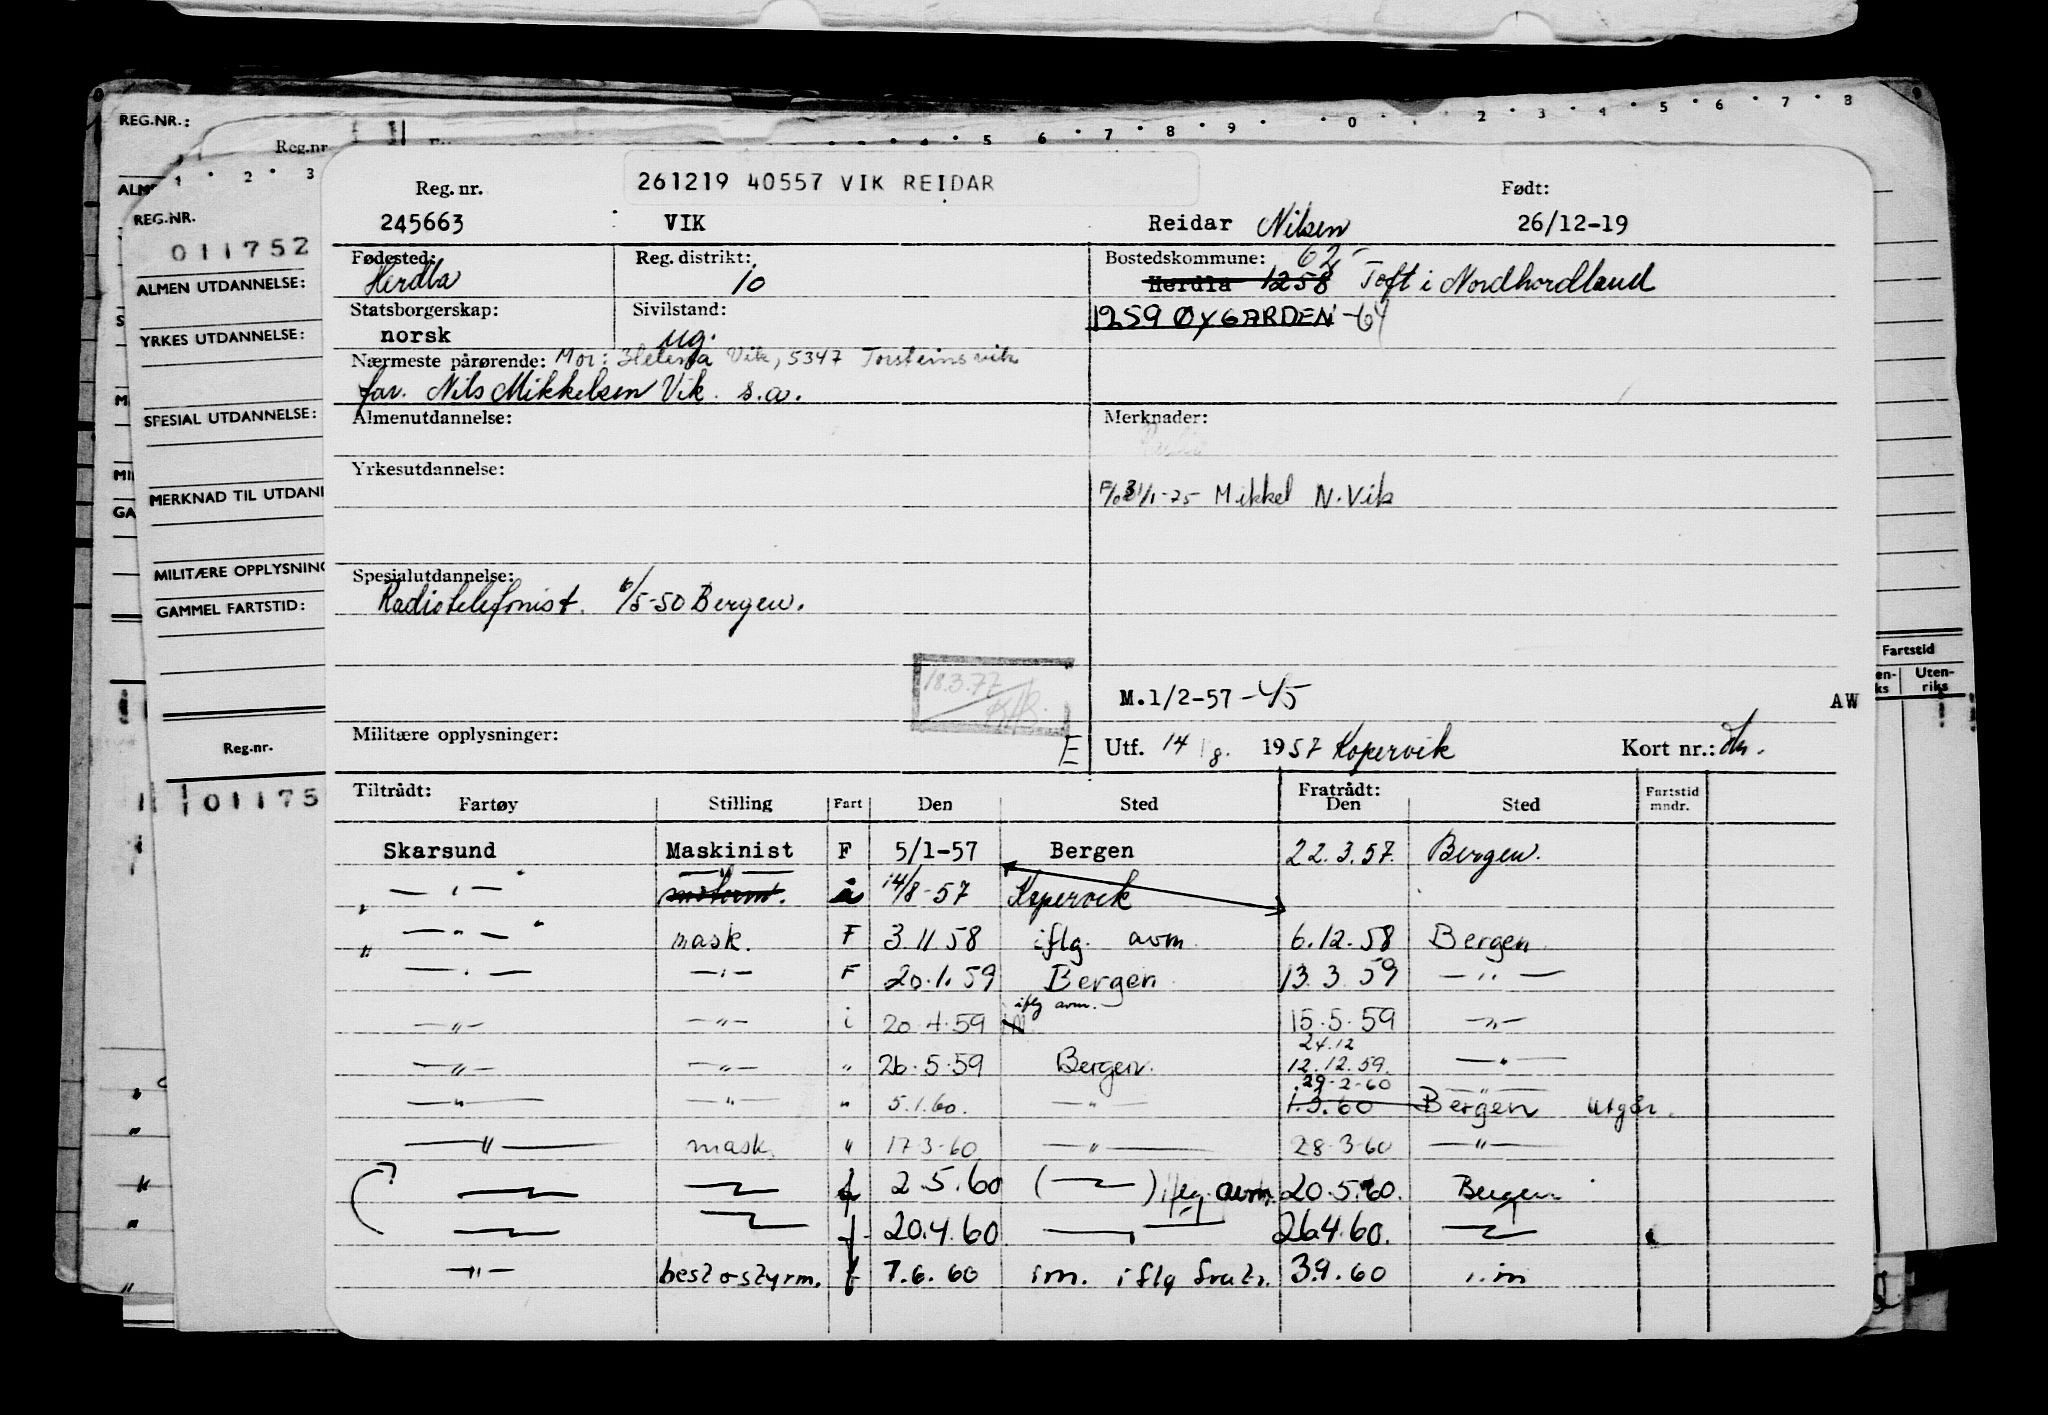 · 2 · 3 · 4 · 5 · 6 · 7 · 8
5 6 · 7 · 8 · 9 · · 0 ·
REG.NR.:
Reg.nr
1 · 2 · 3
REG.NR.
011752
ALMEN UTDANNELSE:
YRKES UTDANNELSE:
SPESIAL UTDANNELSE:
MERKNAD TIL UTDAN
MILITÆRE OPPLYSNING
GAMMEL FARTSTID:
Reg.nr.
01175
Fartstid
Uten-
riks
261219 40557 VIK REIDAR
Reg. nr. Født:
245663 VIK Reidar Nilsen 26/12-19
Fødested: Reg. distrikt: Bostedskommune: 62-
Herdla 10 Herdla 1258 Toft i Nordhordland
Statsborgerskap: Sivilstand: 1259 ØYGARDEN -64
norsk ug.
Nærmeste pårørende: Mor: Helena Vik, 5347 Torsteinsvik
far. Nils Mikkelsen Vik. s.a.
Almenutdannelse: Merknader:
Yrkesutdannelse:
F/o 31/1-75 Mikkel N. Vik
Spesialutdannelse:
Radiotelefonist. 6/5-50 Bergen.
18.3.77
M.1/2-57-45 AW
Militære opplysninger: E Utf. 14/8. 1957 Kopervik Kort nr.:
Tiltrådt: Fratrådt: Fartstid
Fartøy Stilling Fart Den Sted Den Sted mndr.
Skarsund Maskinist F 5/1-57 Bergen 22.3.57. Bergen.
— " — — " — 14/8-57 Kopervik
— " — mask. F 3 11 58 iflg. avm. 6.12.58 Bergen
— " — — " — F 20.1.59 Bergen 13.3.59 — " —
iflg avm.
— " — — " — i 20 4.59 15.5.59 — " —
24.12
— " — — " — " 26.5.59 Bergen. 12.12.59. — " —
29-2-60 — " —
— " — — " — " 5.1.60. — " — 1.3.60 Bergen utgår.
— " — mask. " 17-3-60 — " — 28-3-60 — " —
— " — — " — f 2.5.60 (— " —) iflg. avm. 20.5.60. Bergen
— " — — " — f 20.4.60 — " — 26.4.60. — " —
— " — best o styrm. f 7.6.60 im. iflg fratr. 3.9.60 i.m